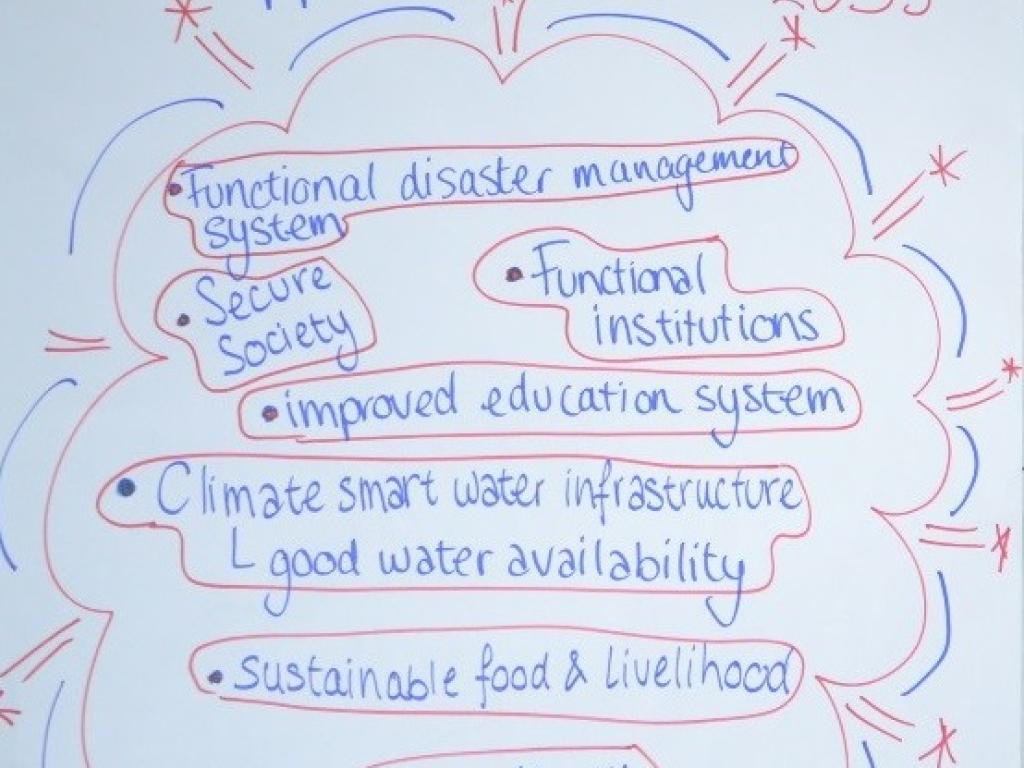 • Functional disaster management
system
• Secure
Society
• Functional
institutions
• improved education system
• Climate smart water infrastructure
L good water availability
• sustainable food & livelihood